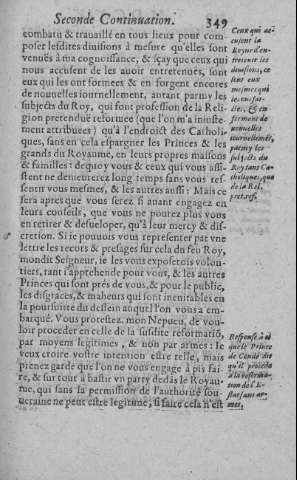 Seconde Continuation. 349
combatu & trauaillé en tous lieux pour com-
poser lesdites diuisions à mesure qu'elles sont
venuës à ma cognoissance, & sçay que ceux qui
nous accusent de les auoir entretenuës, sont
ceux qui les ont formees & en forgent encores
de nouuelles iournellement, autant parmy les
subjects du Roy, qui font profession de la Reli-
gion pretenduë reformee (que l'on m'a iniuste-
ment attribuees) qu'à l'endroict des Catholi-
ques, sans en cela espargner les Princes & les
grands du Royaume, en leurs propres maisons
& familles: dequoy vous & ceux qui vous assi-
stent ne demeurerez long temps sans vous res-
sentir vous mesmes, & les autres aussi: Mais ce
sera apres que vous serez si auant engagez en
leurs conseils, que vous ne pourrez plus vous
en retirer & desueloper, qu'à leur mercy & dis-
cretion. Si ie pouuois vous representer par vne
lettre les recors & presages sur cela du feu Roy,
mondit Seigneur, ie les vous exposerois volon-
tiers, tant i'apprehende pour vous, & les autres
Princes qui sont prés de vous, & pour le public,
les disgraces, & maheurs qui sont ineuitables en
la poursuitte du dessein auquel l'on vous a em-
barqué. Vous protestez, mon Nepueu, de vou-
loir proceder en celle de la susdite reformatiõ,
par moyens legitimes, & non par armes: Ie
veux croire vostre intention estre telle, mais
prenez garde que l'on ne vous engage à pis fai-
re, & sur tout à bastir vn party dedãs le Royau-
me, qui sans la permission de l'authorité sou-
ueraine ne peut estre legitime, si faire cela n'est
Ceux qui ac-
cusent la
Royne d'en-
tretenir les
diuisions, ce
sont eux
mesmes qui
les
nouuelles
iournellemẽt,
parmy les
subjects du
Roy tant Ca-
tholiques, que
de la Rel.
pret. ref.
Response à ce
que le Prince
de Condé dit
qu'il procede
à la reforma-
tion de l'E-
stat sans ar-
mes,